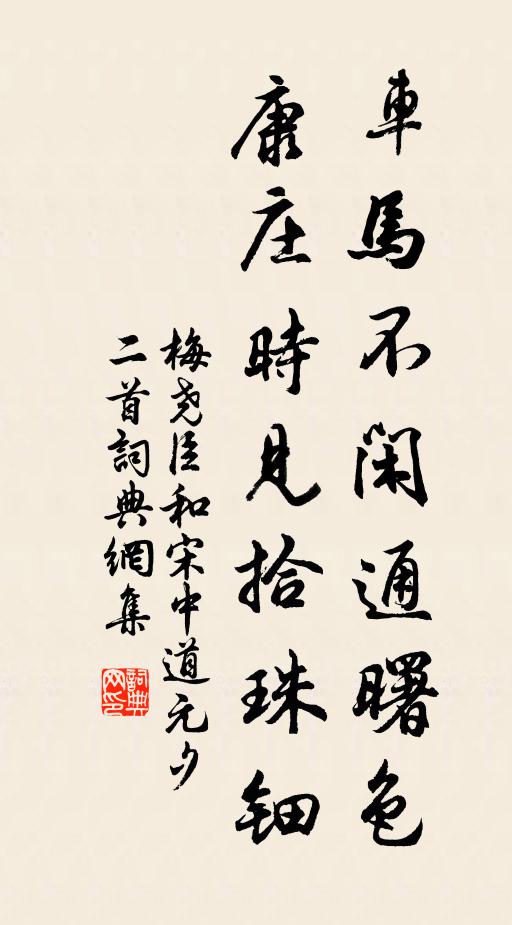 車馬不閑通曙色
康庄時見拾珠鈿
梅尧臣和宋中道元夕
二首詞典網集
詞典网印